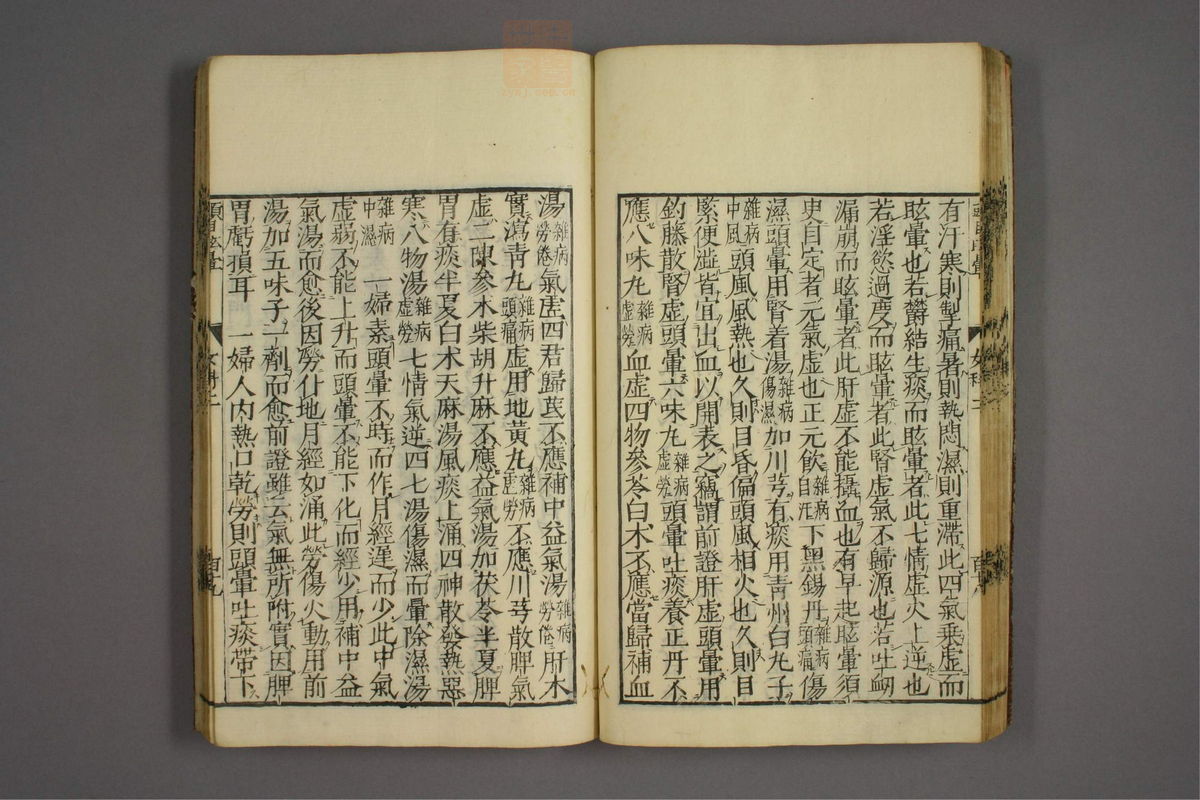 有汗寒則掣痛暑則熱悶濕則重滯此四氣乘虛而
眩暈也若鬱結生痰而眩暈者此七情虛火上逆也
若淫慾過度而眩暈者此腎虛氣不歸源也若吐衂
漏崩而眩暈者此肝虛不能攝血也有早起眩暈須
臾自定者元氣虛也正元飲雜病自汗下黑錫丹雜病頭痛傷
濕頭暈用腎着湯雜病傷濕加川芎有痰用靑州白丸子
雜病中風頭風風熱也久則目昏偏頭風相火也久則目
緊便澁皆宜出血以開表之竊謂前證肝虛頭暈用
釣藤散腎虛頭暈六味丸雜病虛勞頭暈吐痰養正丹不
應八味丸雜病虛勞血虛四物參苓白朮不應當歸補血
湯雜病勞倦氣虛四君歸芪不應補中益氣湯雜病勞倦肝木
實瀉靑丸雜病頭痛虛用地黃丸雜病虛勞不應川芎散脾氣
虛二陳參朮柴胡升麻不應益氣湯加茯苓半夏脾
胃有痰半夏白朮天麻湯風痰上涌四神散發熱惡
寒八物湯雜病虛勞七情氣逆四七湯傷濕而暈除濕湯
雜病中濕 一婦素頭暈不時而作月經遲而少此中氣
虛弱不能上升而頭暈不能下化而經少用補中益
氣湯而愈後因勞仆地月經如涌此勞傷火動用前
湯加五味子一劑而愈前證雖云氣無所附實因脾
胃虧損耳 一婦人內熱口乾勞則頭暈吐痰帶下
頭目眩暈 女科二 百十九